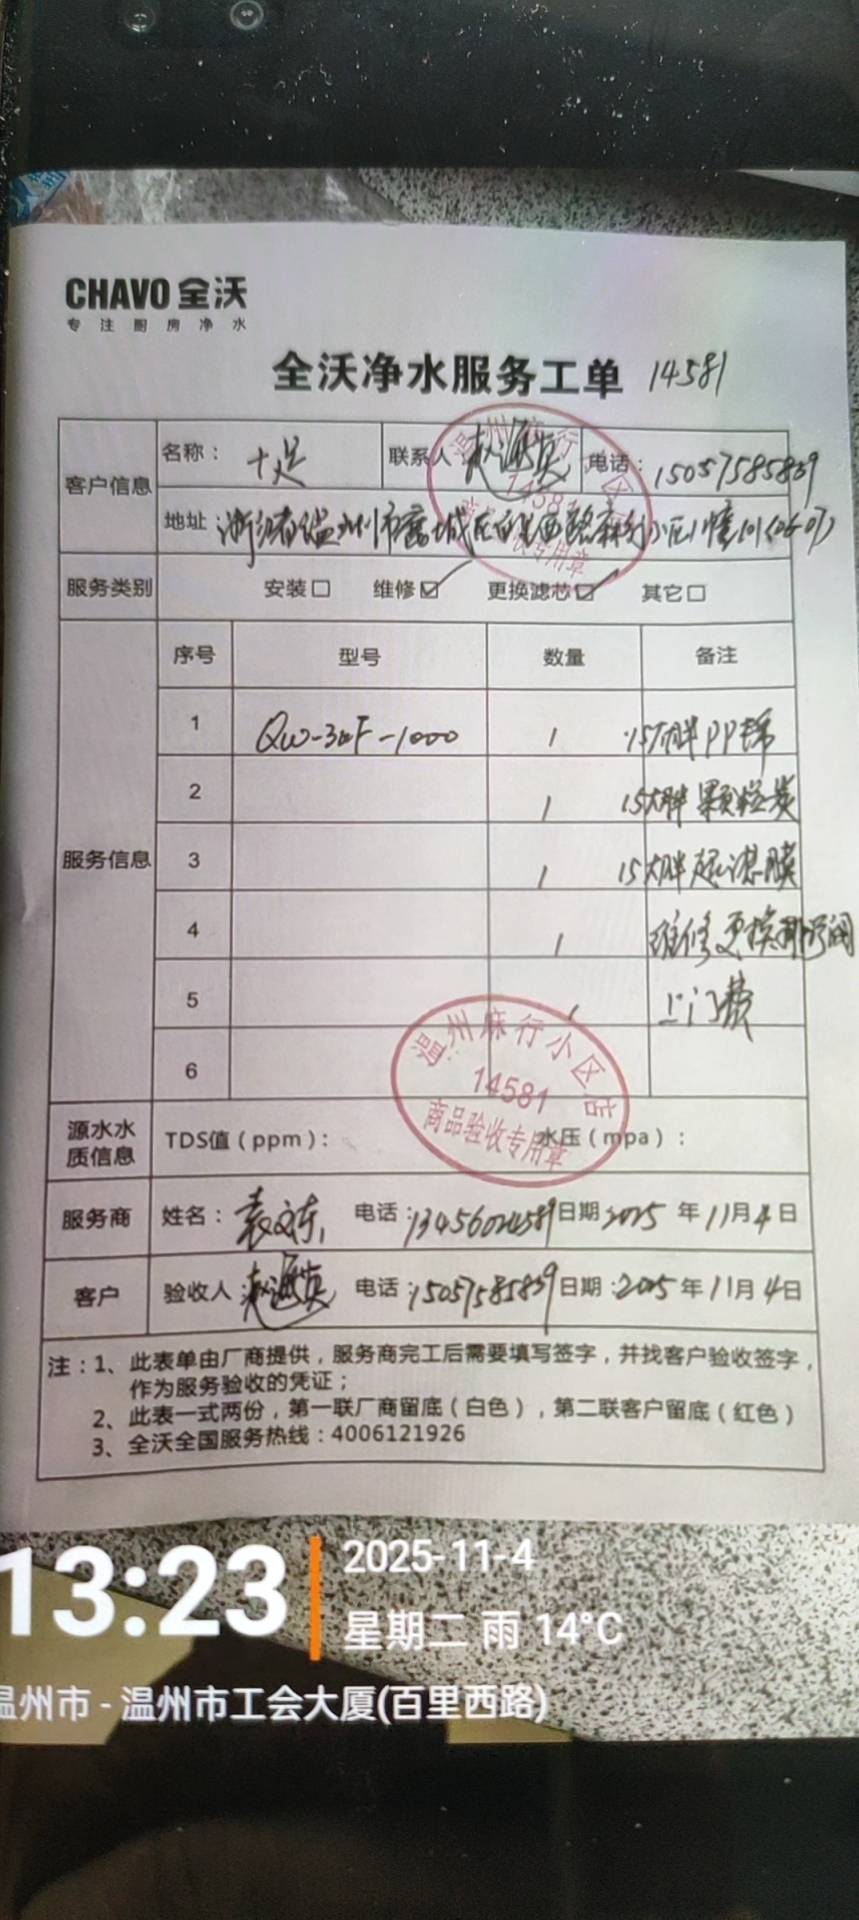 CHAVO 全沃
专注厨房净水
全沃净水服务工单 14581
客户信息
名称： 十足 联系人 电话： 15057585839
地址 浙江省温州市鹿城区百里西路麻行小区1幢101(06-07)
服务类别 安装□ 维修☑ 更换滤芯☑ 其它□
服务信息
序号 型号 数量 备注
1 QW-3UF-1000 1 15大胖PP棉
2 1 15大胖颗粒炭
3 1 15大胖超滤膜
4 1 维修更换
5 1 上门费
6
温州麻行小区店
14581
商品验收专用章
源水水质信息 TDS值（ppm）： 水压（mpa）：
服务商 姓名： 袁文东 电话： 日期 2025 年 11 月 4 日
客户 验收人 电话：15057585839 日期：2025 年 11 月 4 日
注：1、此表单由厂商提供，服务商完工后需要填写签字，并找客户验收签字，
作为服务验收的凭证；
2、此表一式两份，第一联厂商留底（白色），第二联客户留底（红色）
3、全沃全国服务热线：4006121926
13:23
2025-11-4
星期二 雨 14°C
温州市 - 温州市工会大厦(百里西路)